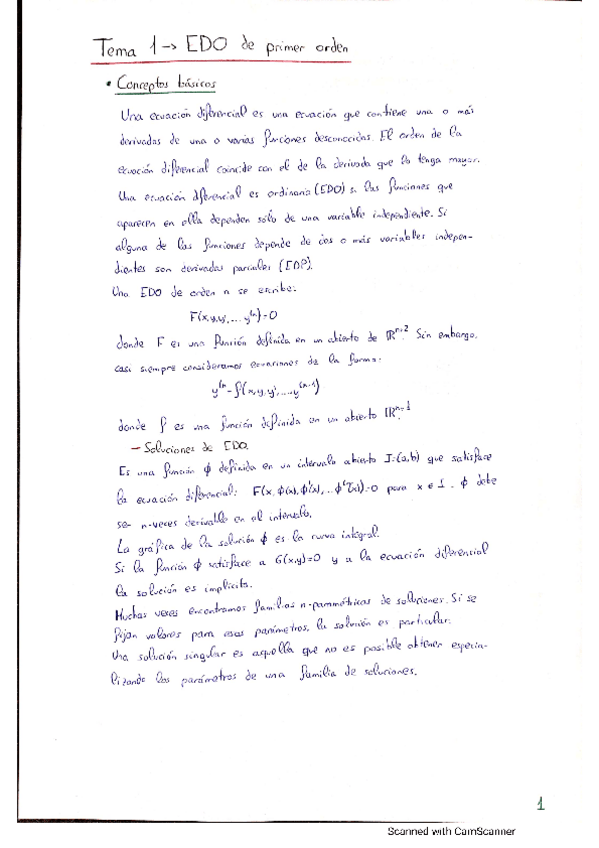 Tema 1 → EDO de primer orden
• Conceptos básicos
Una ecuación diferencial es una ecuación que contiene una o más
derivadas de una o varias funciones desconocidas. El orden de la
ecuación diferencial coincide con el de la derivada que lo tenga mayor.
Una ecuación diferencial es ordinaria (EDO) si las funciones que
aparecen en ella dependen sólo de una variable independiente. Si
alguna de las funciones depende de dos o más variables indepen-
dientes son derivadas parciales (EDP).
Una EDO de orden n se escribe:
F(x,y,y',...,y⁽ⁿ⁾)=0
donde F es una función definida en un abierto de ℝⁿ⁺². Sin embargo,
casi siempre consideramos ecuaciones de la forma:
y⁽ⁿ⁾=f(x,y,y',...,y⁽ⁿ⁻¹⁾)
donde f es una función definida en un abierto ℝⁿ⁺¹
— Soluciones de EDO.
Es una función ϕ definida en un intervalo abierto I=(a,b) que satisface
la ecuación diferencial: F(x,ϕ(x),ϕ'(x),...ϕ⁽ⁿ⁾(x))=0 para x∈I. ϕ debe
ser n-veces derivable en el intervalo.
La gráfica de la solución ϕ es la curva integral.
Si la función ϕ satisface a G(x,y)=0 y a la ecuación diferencial
la solución es implícita.
Muchas veces encontramos familias n-paramétricas de soluciones. Si se
fijan valores para esos parámetros, la solución es particular.
Una solución singular es aquella que no es posible obtener especia-
lizando los parámetros de una familia de soluciones.
1
Scanned with CamScanner